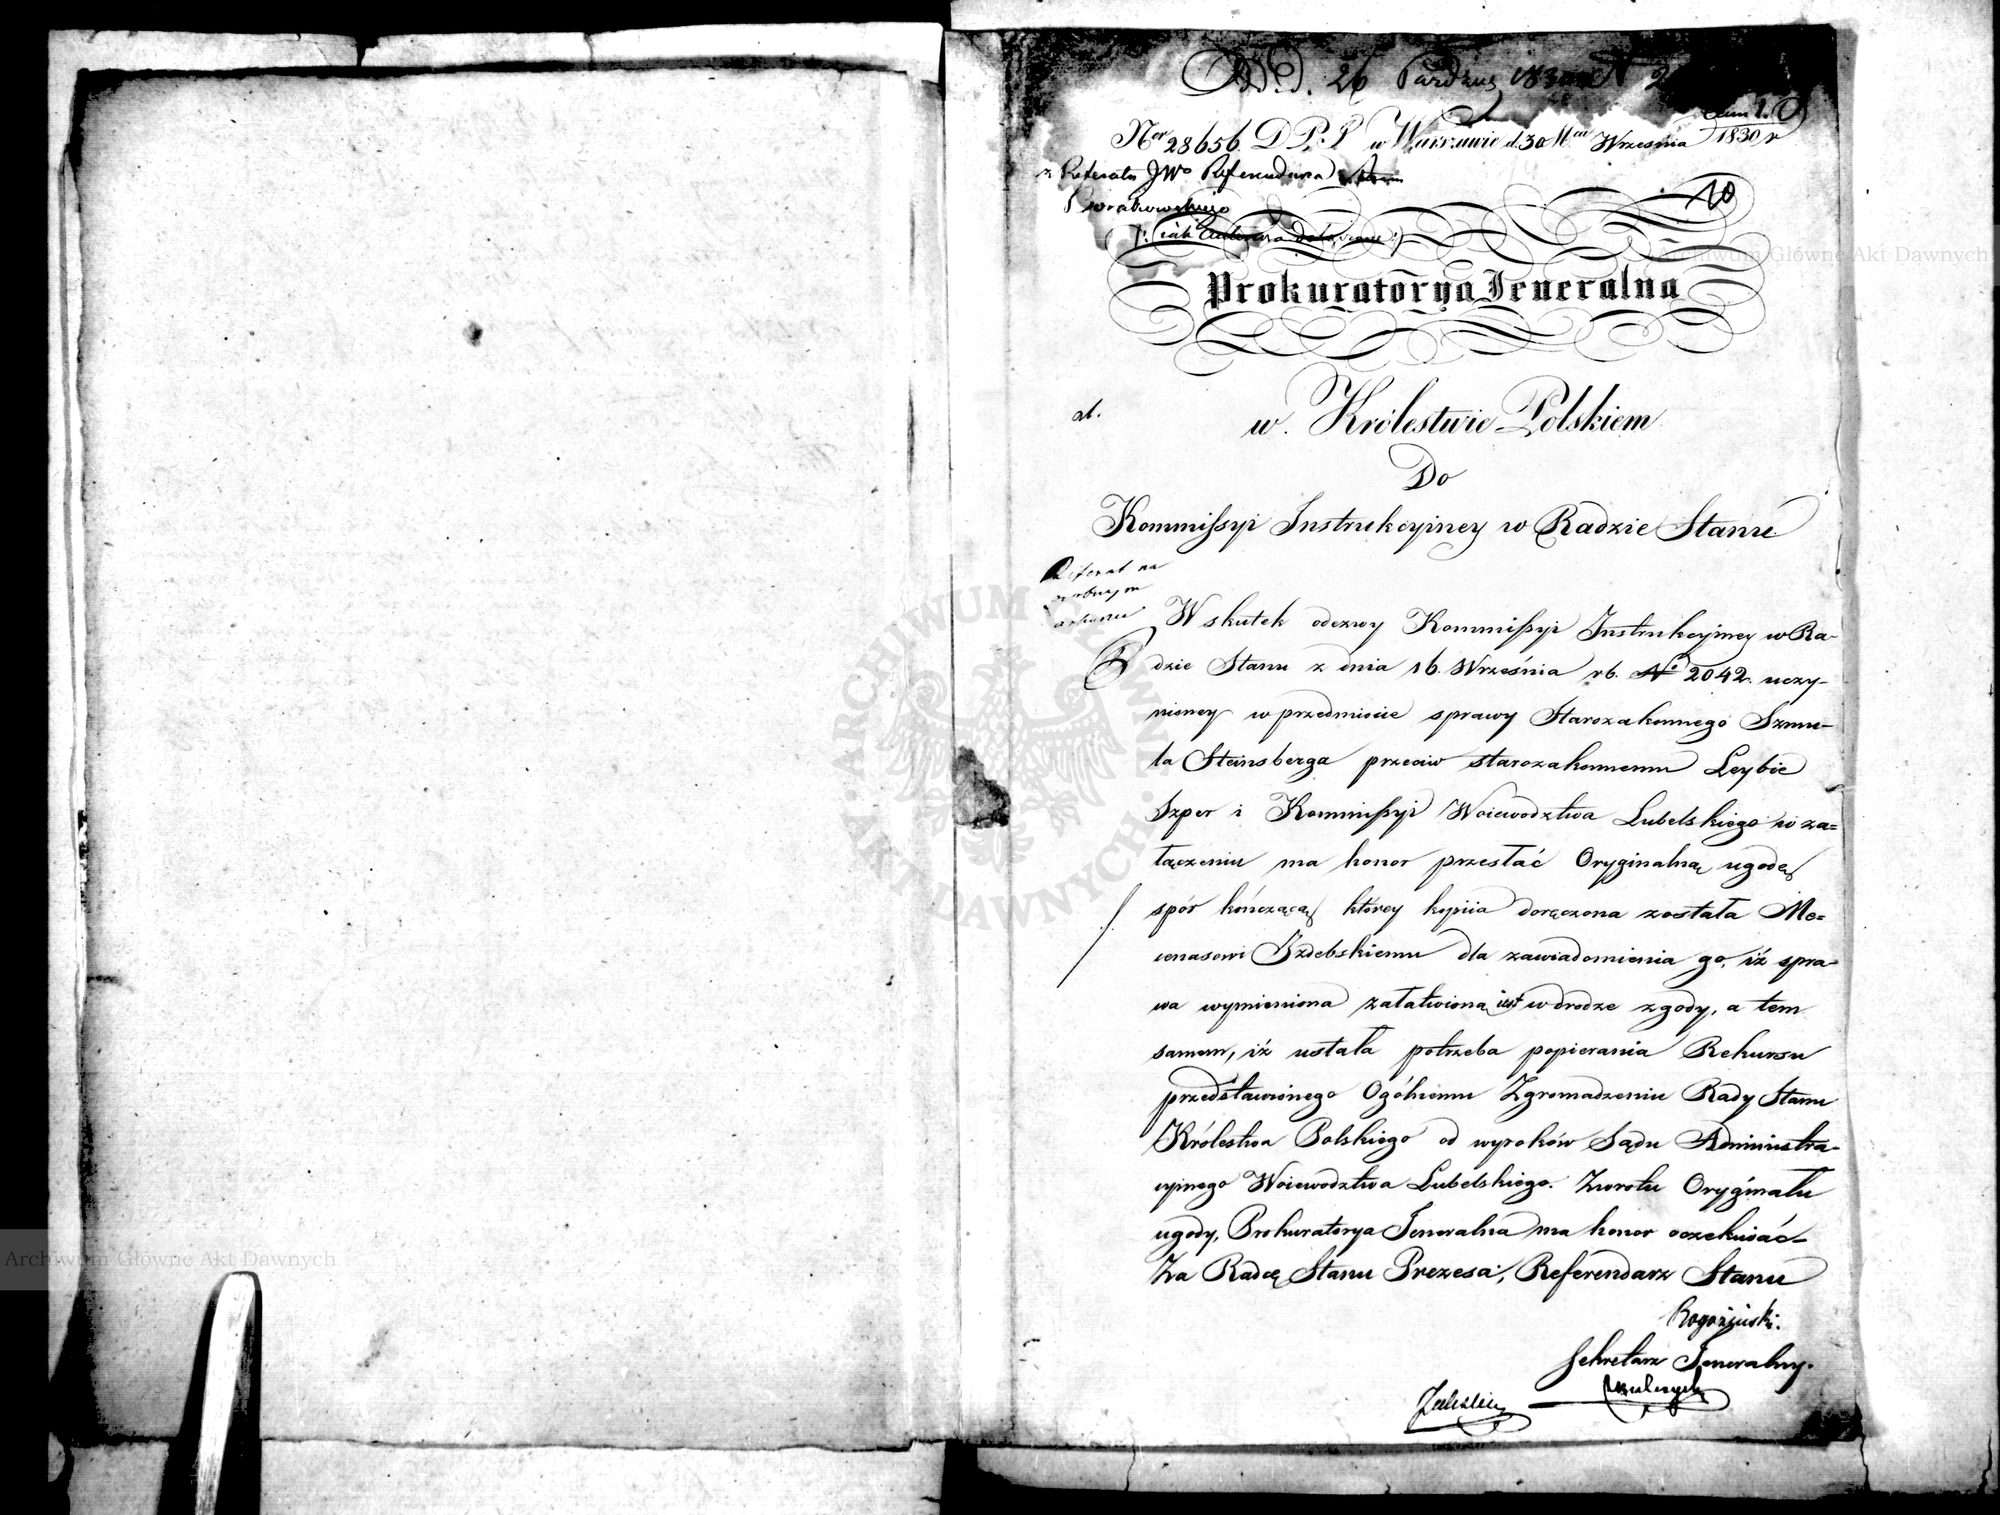 26 Paźdz 1830
Nor 28656. D.P.P. w Warszawie d. 30 Mca Września 1830 r
z Referatu JWo Referendarza
10
Prokuratorya Jeneralna
w Królestwie Polskiem
Do
Kommissyi Instrukcyiney w Radzie Stanu
Referat na
osobnym
W skutek odezwy Kommissyi Instrukcyiney w Ra-
dzie Stanu z dnia 16. Września rb. No 2042. uczy-
nioney w przedmiocie sprawy Starozakonnego Szmu-
la Steinsberga przeciw starozakonnemu Leybie
Szper i Kommissyi Woiewodztwa Lubelskiego w za=
łączeniu ma honor przesłać Oryginalną ugodę
spór kończącą, którey kopiia doręczona została Me=
cenasowi Izdebskiemu dla zawiadomienia go, iż spra-
wa wymieniona załatwioną iest w drodze zgody, a tem
samem, iż ustała potrzeba popierania Rekursu
przedstawionego Ogólnemu Zgromadzeniu Rady Stanu
Królestwa Polskiego od wyroków Sądu Administra-
cyinego Woiewodztwa Lubelskiego. Zwrotu Oryginału
ugody, Prokuratorya Jeneralna ma honor oczekiwać
Za Radcę Stanu Prezesa, Referendarz Stanu
Rogoziński.
Sekretarz Jeneralny.
Archiwum Główne Akt Dawnych
Archiwum Główne Akt Dawnych
ARCHIWUM GŁÓWNE AKT DAWNYCH